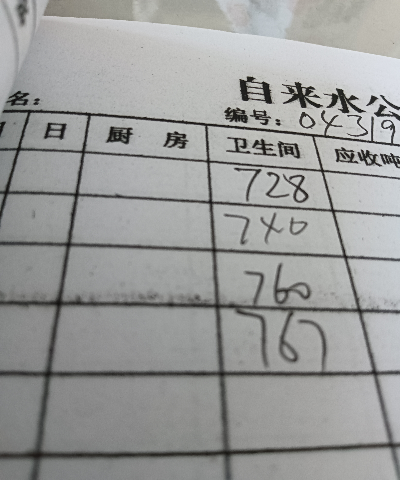 自来水公
名：
编号：04319
日 厨 房 卫生间 应收吨
728
740
760
767